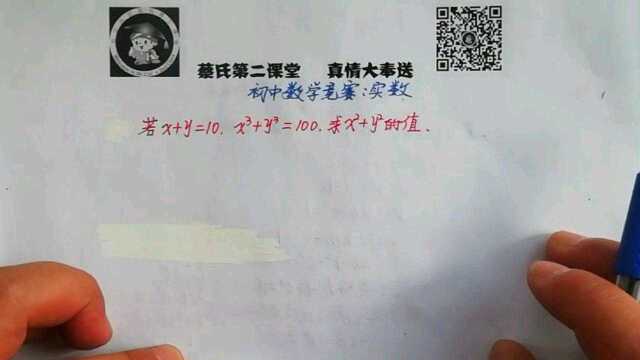 蔡氏第二课堂 真情大奉送
初中数学竞赛:实数
若x+y=10, x³+y³=100, 求x²+y²的值.